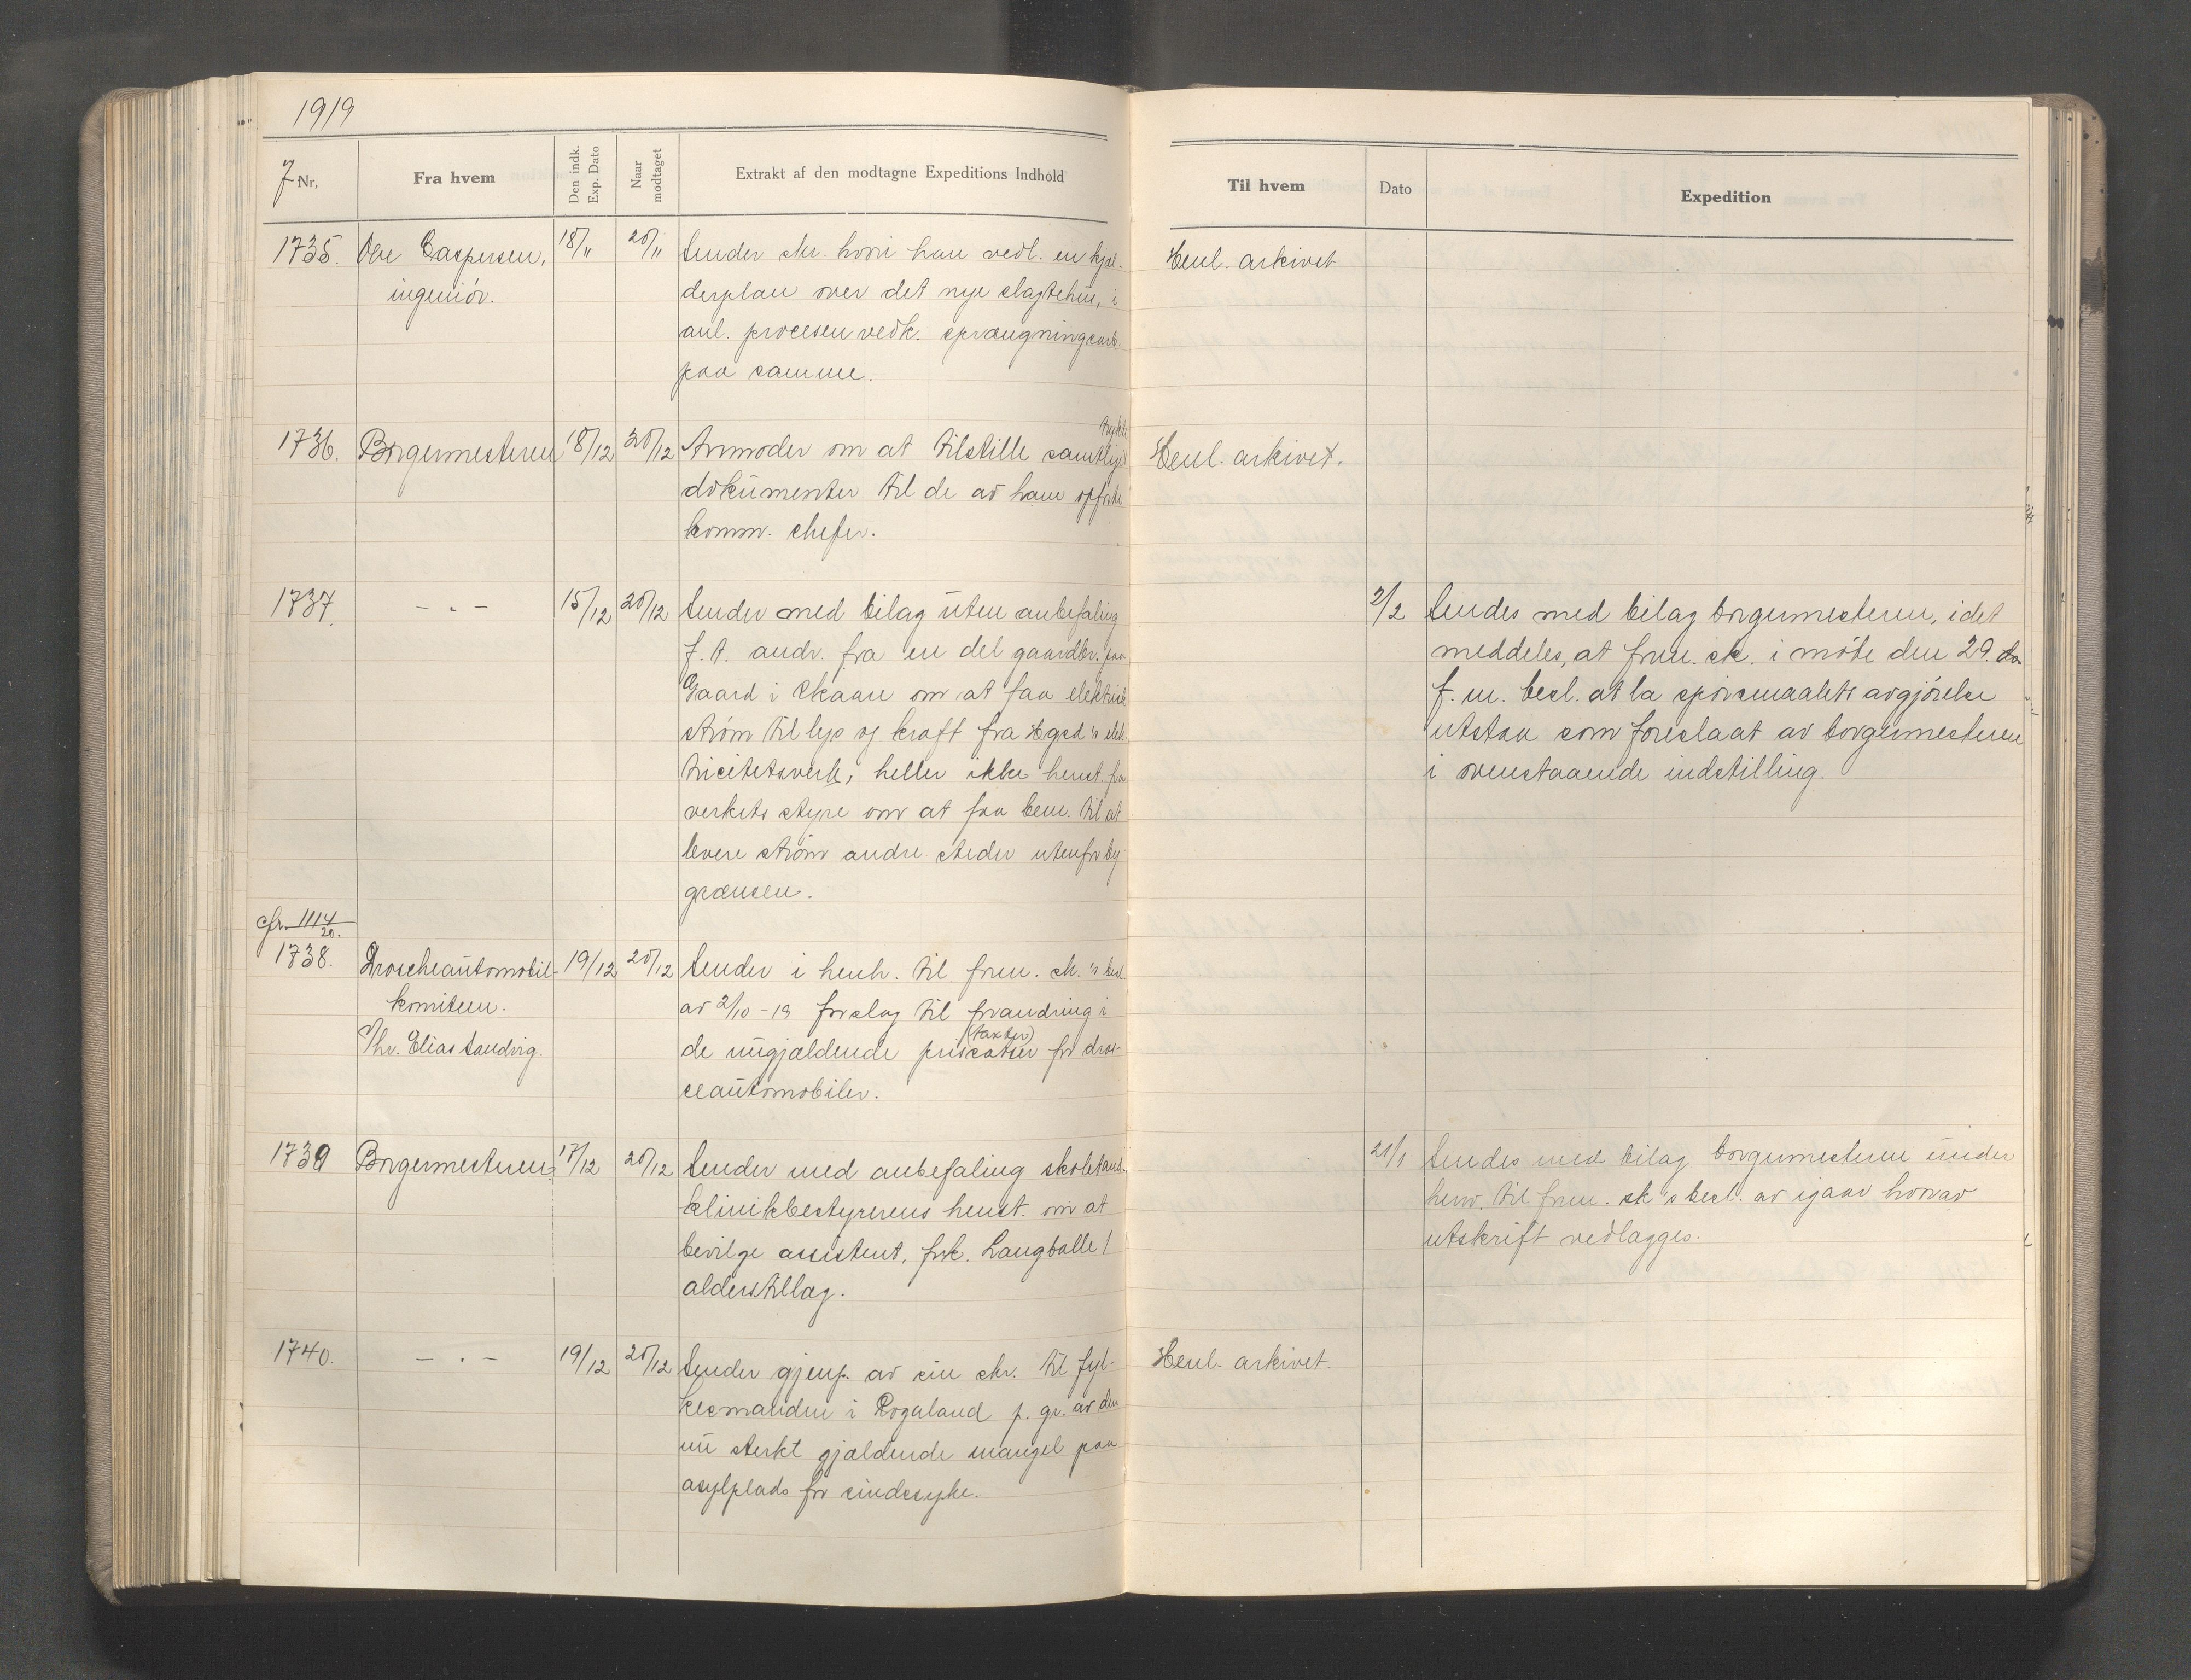 1919
J Nr.
Fra hvem
Den indk. Exp. Dato
Naar modtaget
Extrakt af den modtagne Expeditions Indhold
Til hvem
Dato
Expedition
1735. Ove Caspersen, 18/11 20/11 Sender skr. hvori han vedl. en kjæl-
ingeniør. derplan over det nye slagtehus, i
anl. procesen vedk. sprængningsarb.
paa samme.
Henl. arkivet
1736. Borgermesteren 18/12 20/12 Anmoder om at tilstille samtlige trykte
dokumenter til de av ham opførte
komm. chefer.
Henl. arkivet.
1737. - „ - 15/12 20/12 Sender med bilag uten anbefaling
f. t. andr. fra en del gaardbr. paa
Gaard i Skaare om at faa elektrisk
strøm til lys og kraft fra Hgsd's elek-
tricitetsverk, heller ikke henst. fra
verkets styre om at faa bem. til at
levere strøm andre steder utenfor by-
grænsen.
2/2 Sendes med bilag borgermesteren, idet
meddeles, at form. sk. i møte den 29.
f. m. besl. at la spørsmaalets avgjørelse
utstaa som foreslaat av borgermesteren
i ovenstaaende indstilling.
cfr. 1114/20.
1738. Droscheautomobil- 19/12 20/12 Sender i henh. til form. sk.'s besl.
komiteen. av 2/10-19 forslag til forandring i
v/hr. Elias Sandvig. de nugjældende prissatser (taxter) for dros-
ceautomobiler.
1739 Borgermesteren 17/12 20/12 Sender med anbefaling skoletand-
klinikbestyrerens henst. om at
bevilge assistent, frk. Langballe 1
alderstillæg.
21/1 Sendes med bilag borgermesteren under
henv. til form. sk's besl. av igaar hvorav
utskrift vedlægges.
1740. - „ - 19/12 20/12 Sender gjenp. av sin skr. til fyl-
kesmanden i Rogaland p. gr. av den
nu sterkt gjældende mangel paa
asylplads for sindssyke.
Henl. arkivet.